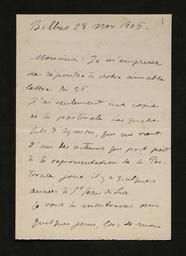 1
Bilbao 28 nov 1905.
Monsieur: Je m'empresse
de repondre à votre aimable
lettre du 25.
J'ai seulement une copie
de la pastorale Les quatre
fils d'Aymon, que me vient
d'un des acteurs qui prit part
à la representation de la Pas-
torale joué il y a quelques
années à St Jean de Luz.
Je vous la montrerai dans
quelques jours, lors de mon